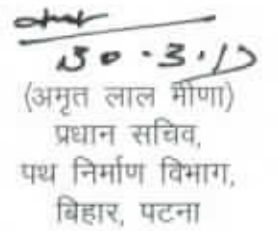 30.3.17
(अमृत लाल मीणा)
प्रधान सचिव,
पथ निर्माण विभाग,
बिहार, पटना